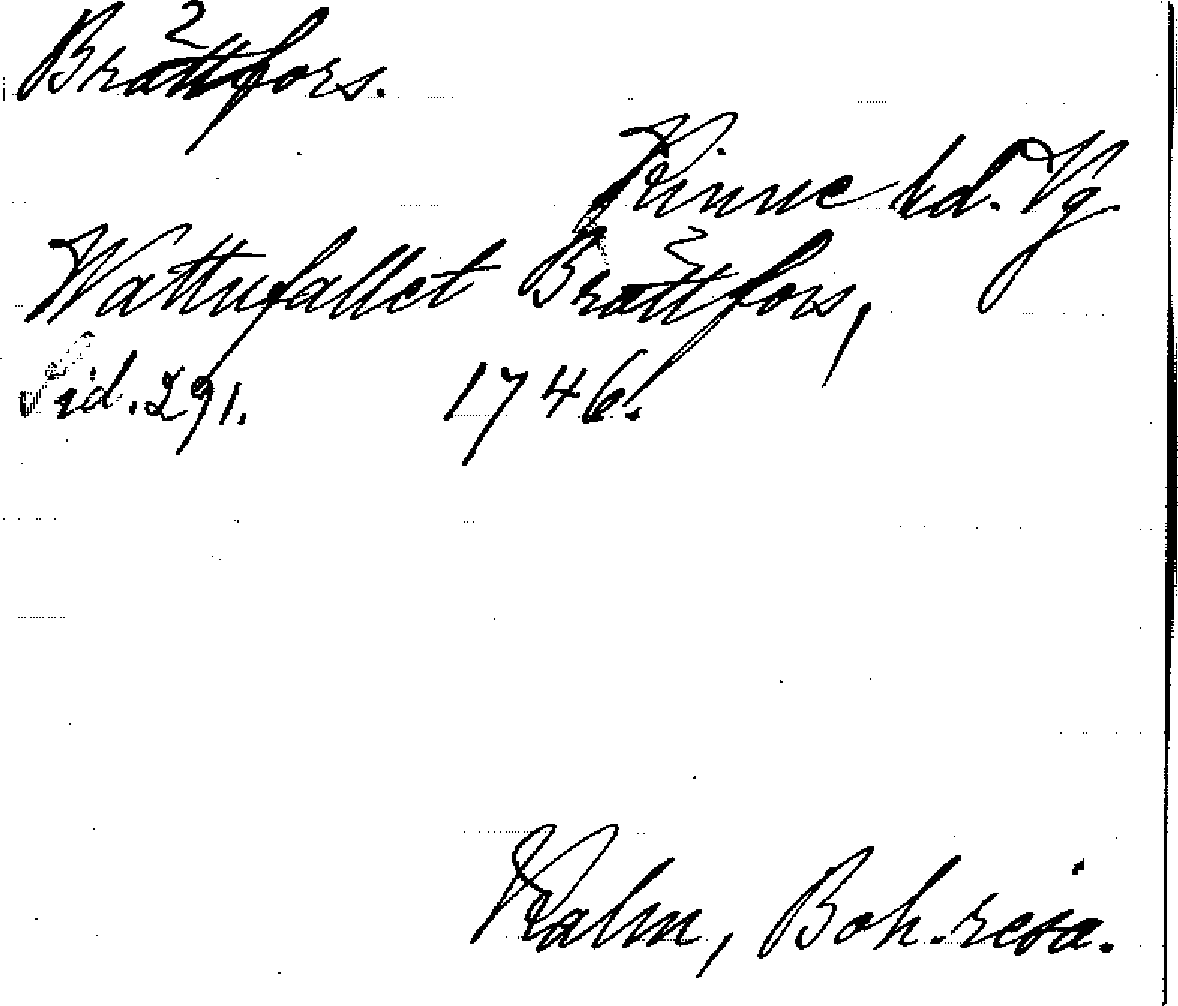 Bråttfors.
Kinne hd. Vg
Wattufallet Bråttfors,
Sid. 291. 1746.
Kalm, Boh. resa.